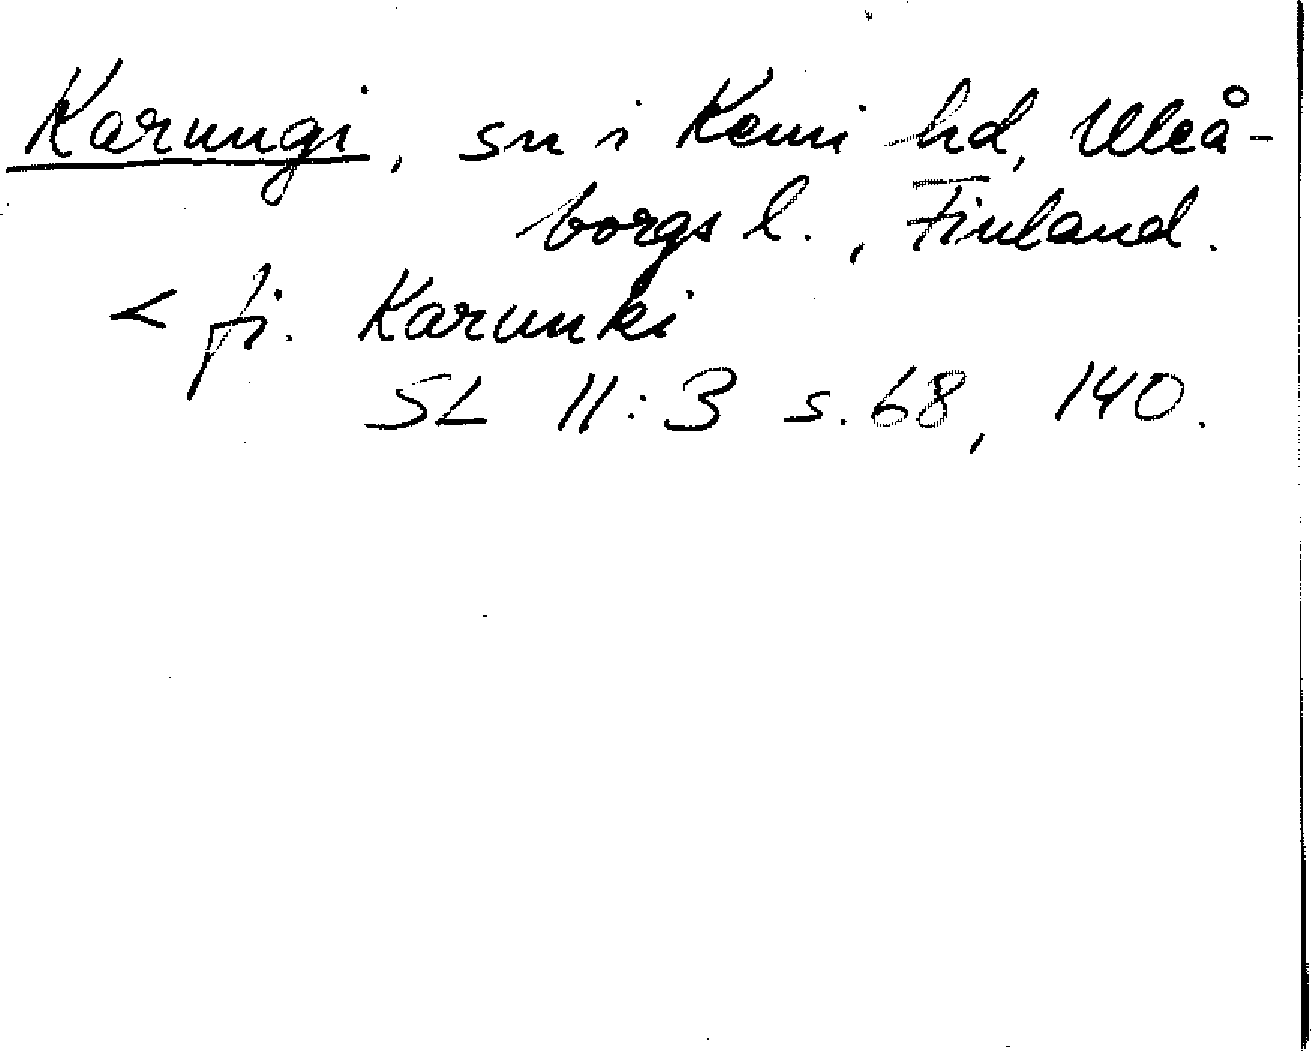 Karungi, sn i Kemi hd, Uleå-
borgs l., Finland.
< fi. Karunki
SL 11:3 s. 68, 140.